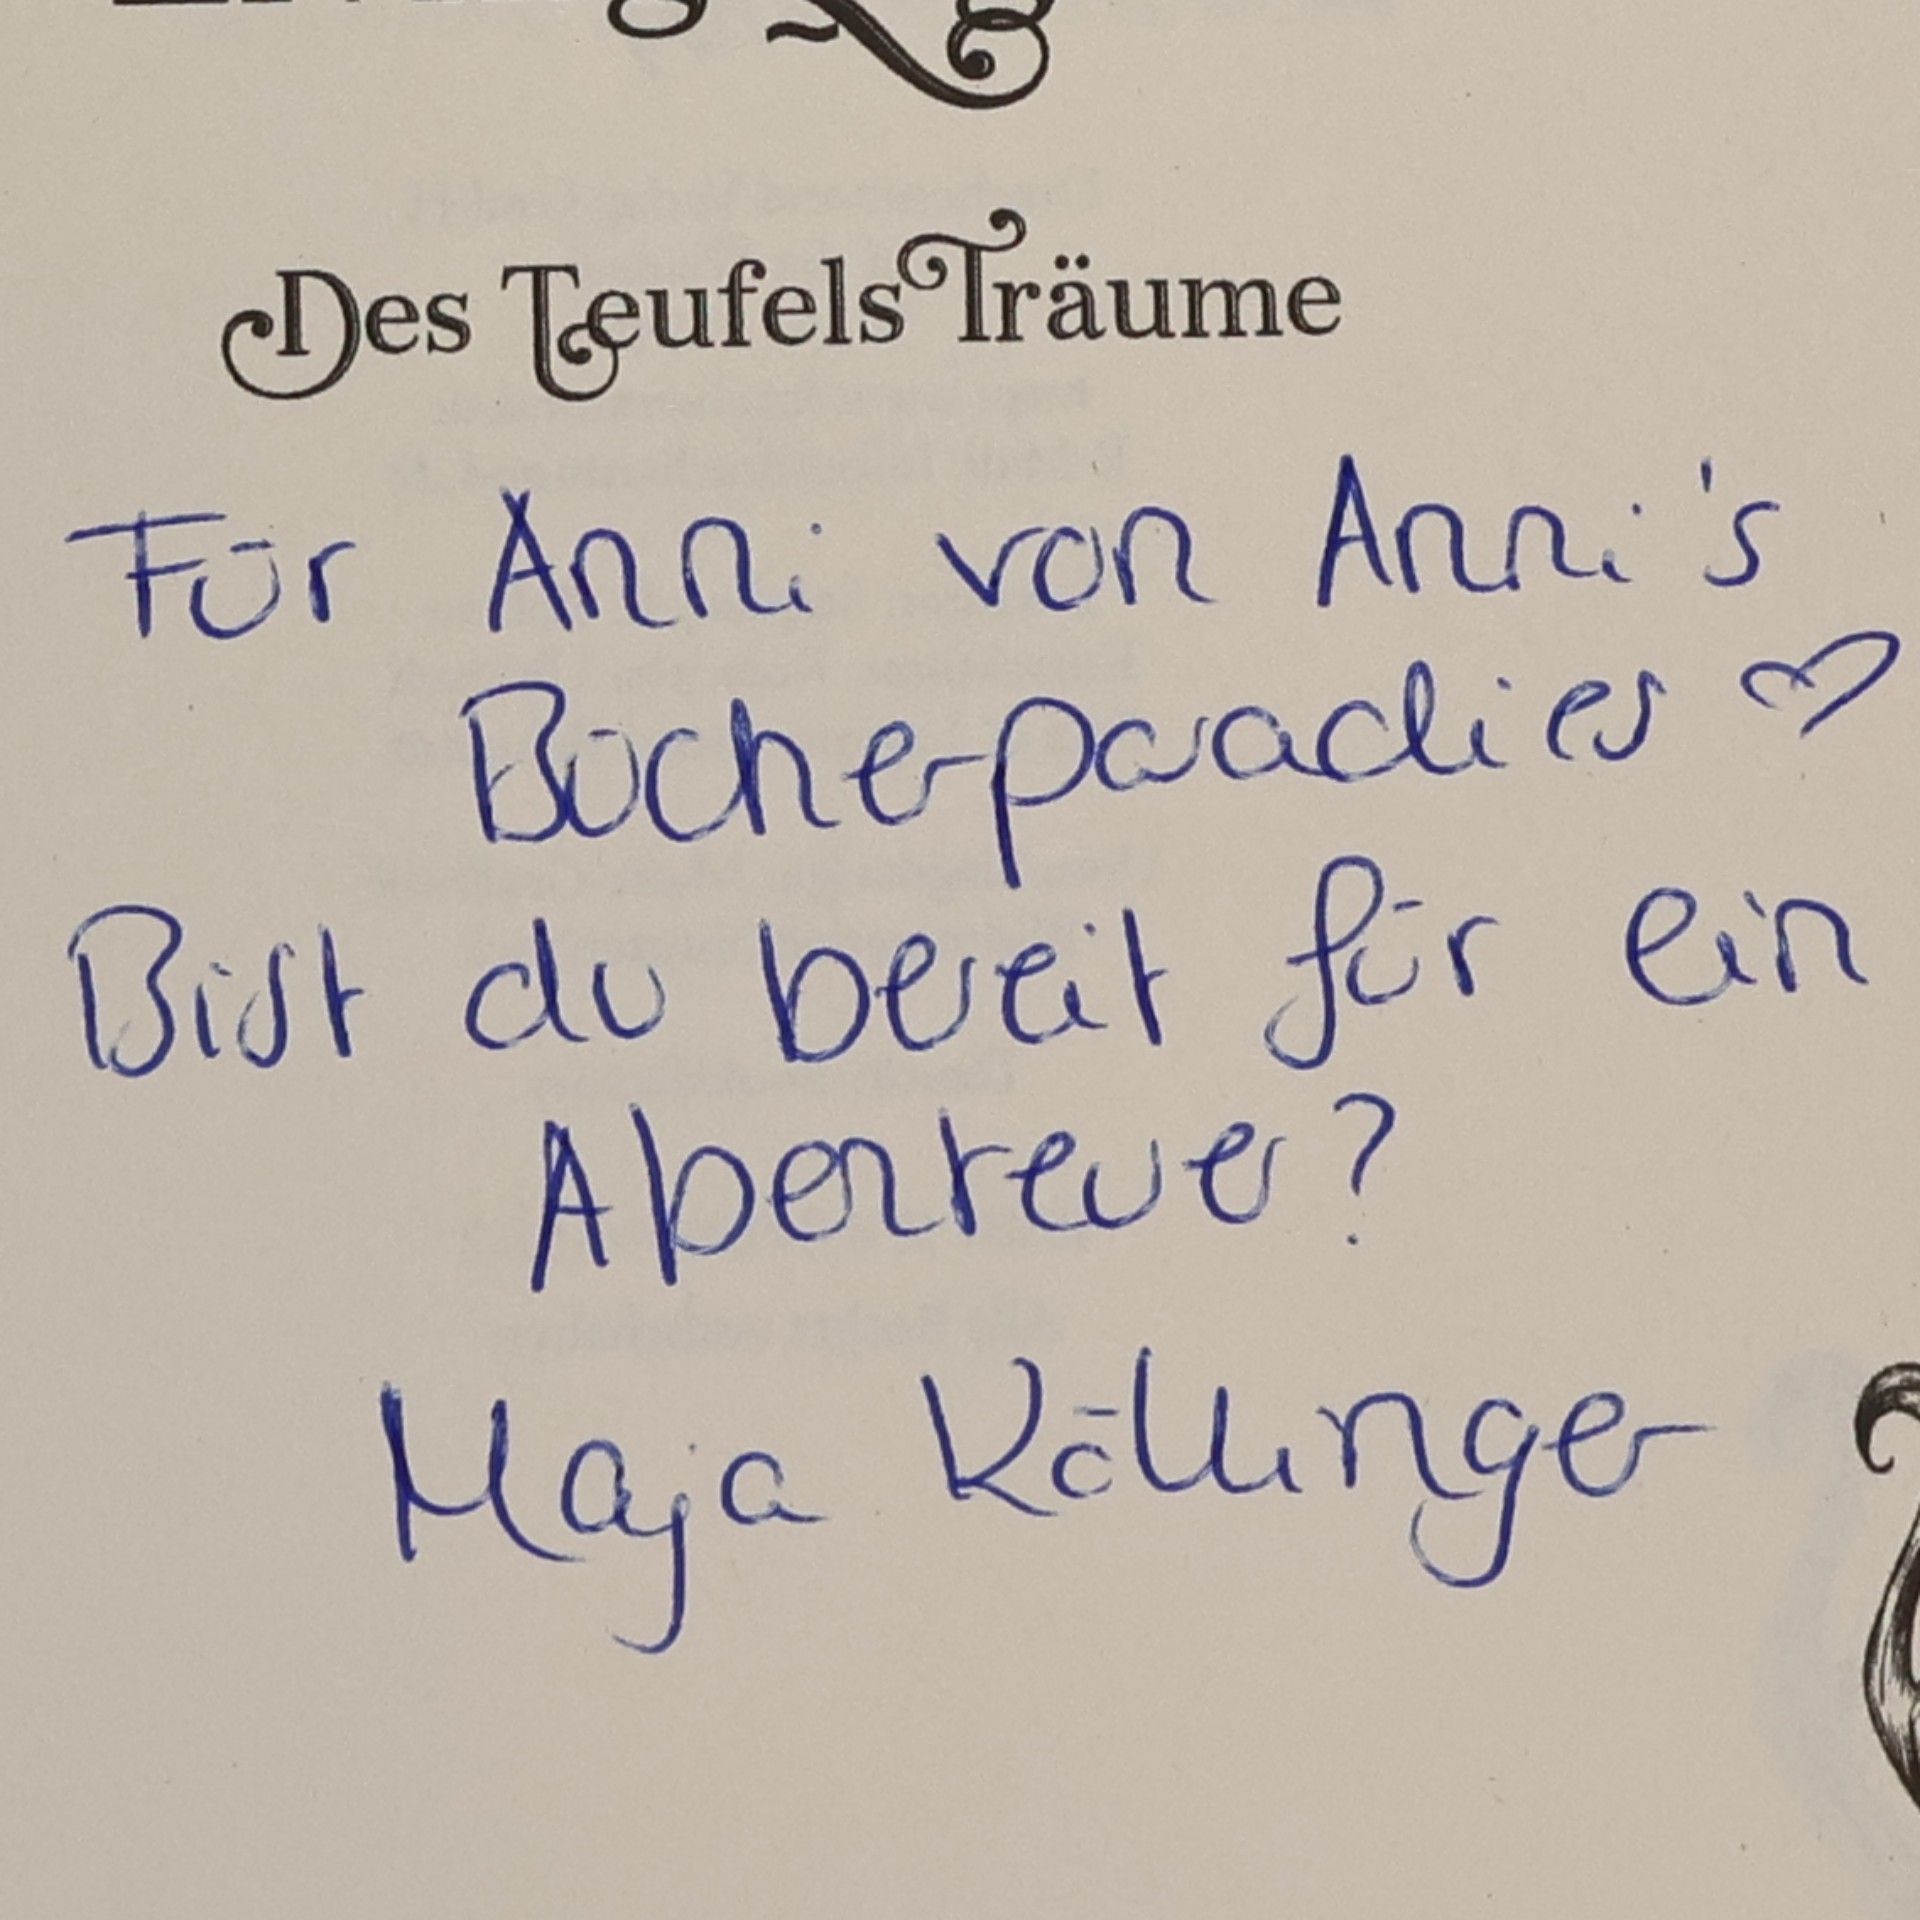 Des Teufels Träume
Für Anni von Anni's
Bücherparadies ♡
Bist du bereit für ein
Abenteuer?
Maja Köllinger